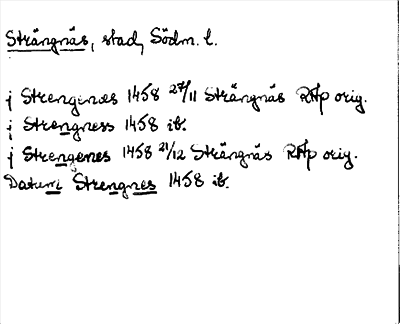 Strängnäs, stad, Södm. l.
j Strengenæs 1458 27/11 Strängnäs RAp orig.
j Strengness 1458 ib.
j Strengenes 1458 21/12 Strängnäs RAp orig.
Datum Strengnes 1458 ib.